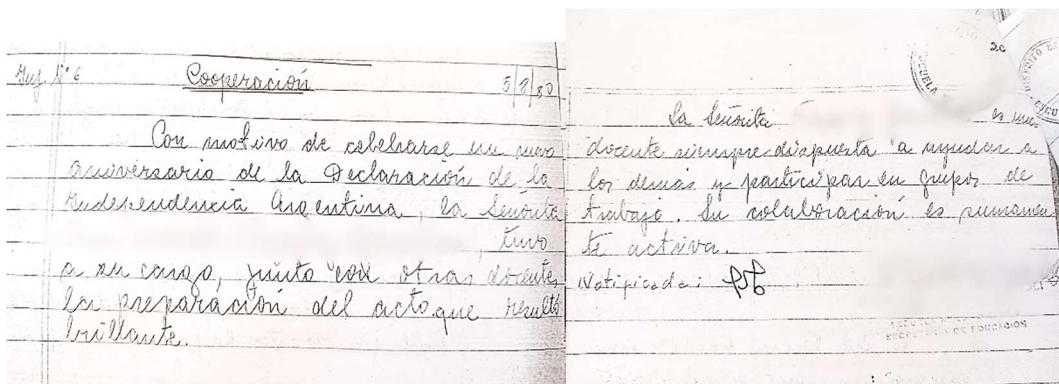 Inf. N° 6 Cooperación 5/8/80
Con motivo de celebrarse un nuevo
aniversario de la Declaración de la
Independencia Argentina, la Señorita
tuvo
a su cargo, junto con otras docentes
la preparación del acto que resultó
brillante.
20
La Señorita es una
docente siempre dispuesta a ayudar a
los demás y participar en grupos de
trabajo. Su colaboración es sumamen
te activa.
Notificada:
ESCUELA
SECRETARIA DE EDUCACION